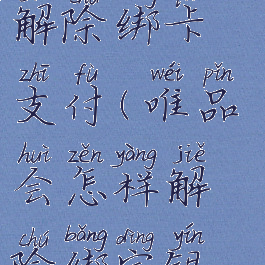 解除绑卡
zhī fù wéi pǐn
支付(唯品
huì zěn yàng jiě
会怎样解
chú bǎng dìng yín
除绑定银